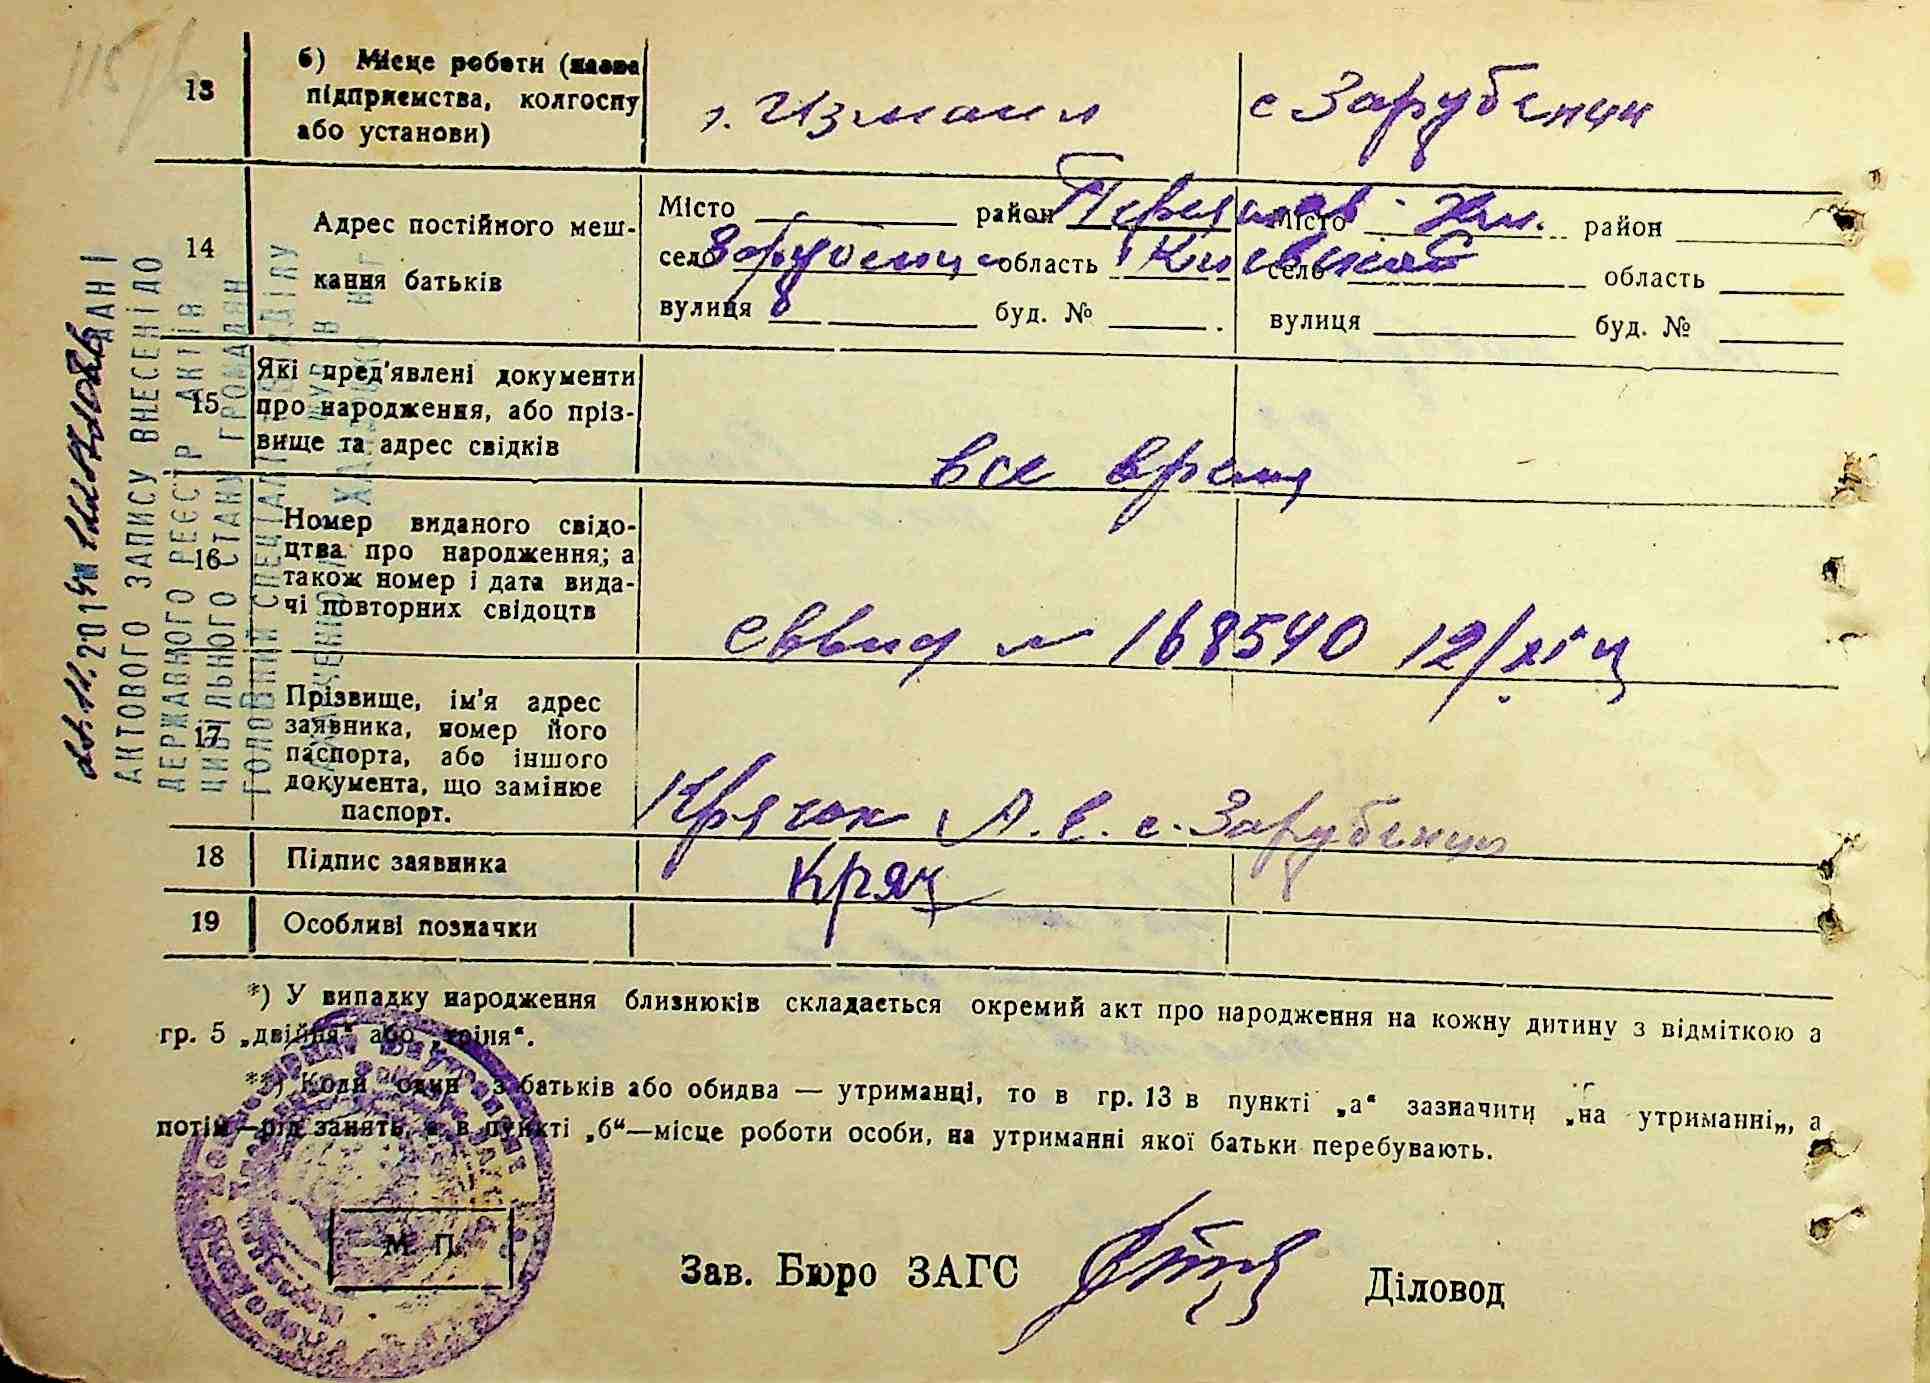 115
13
б) Місце роботи (назва
підприємства, колгоспу
або установи)
г. Измаил
с Зарубенци
14
Адрес постійного меш-
кання батьків
Місто район Переяслав-Хм.
село Зарубенци область Киевской
вулиця буд. №
Місто район
село область
вулиця буд. №
15
Які пред'явлені документи
про народження, або пріз-
вище та адрес свідків
все время
16
Номер виданого свідо-
цтва про народження; а
також номер і дата вида-
чі повторних свідоцтв
№ 168540 12/XI
17
Прізвище, ім'я адрес
заявника, номер його
паспорта, або іншого
документа, що замінює
паспорт.
Крячок А. Е. с. Зарубенци
18
Підпис заявника
Кряч
19
Особливі позначки
*) У випадку народження близнюків складається окремий акт про народження на кожну дитину з відміткою а
гр. 5 „двійня“ або „тріня“.
**) Коли один з батьків або обидва — утриманці, то в гр. 13 в пункті „а“ зазначити „на утриманні„, а
потім—рід занять, а в пункті „б“—місце роботи особи, на утриманні якої батьки перебувають.
М. П.
Зав. Бюро ЗАГС
Діловод
ДАНІ
АКТОВОГО ЗАПИСУ ВНЕСЕНІ ДО
ДЕРЖАВНОГО РЕЄСТР АКТІВ
ЦИВІЛЬНОГО СТАНУ ГРОМАДЯН
ГОЛОВНИЙ СПЕЦІАЛІСТ ВІДДІЛУ